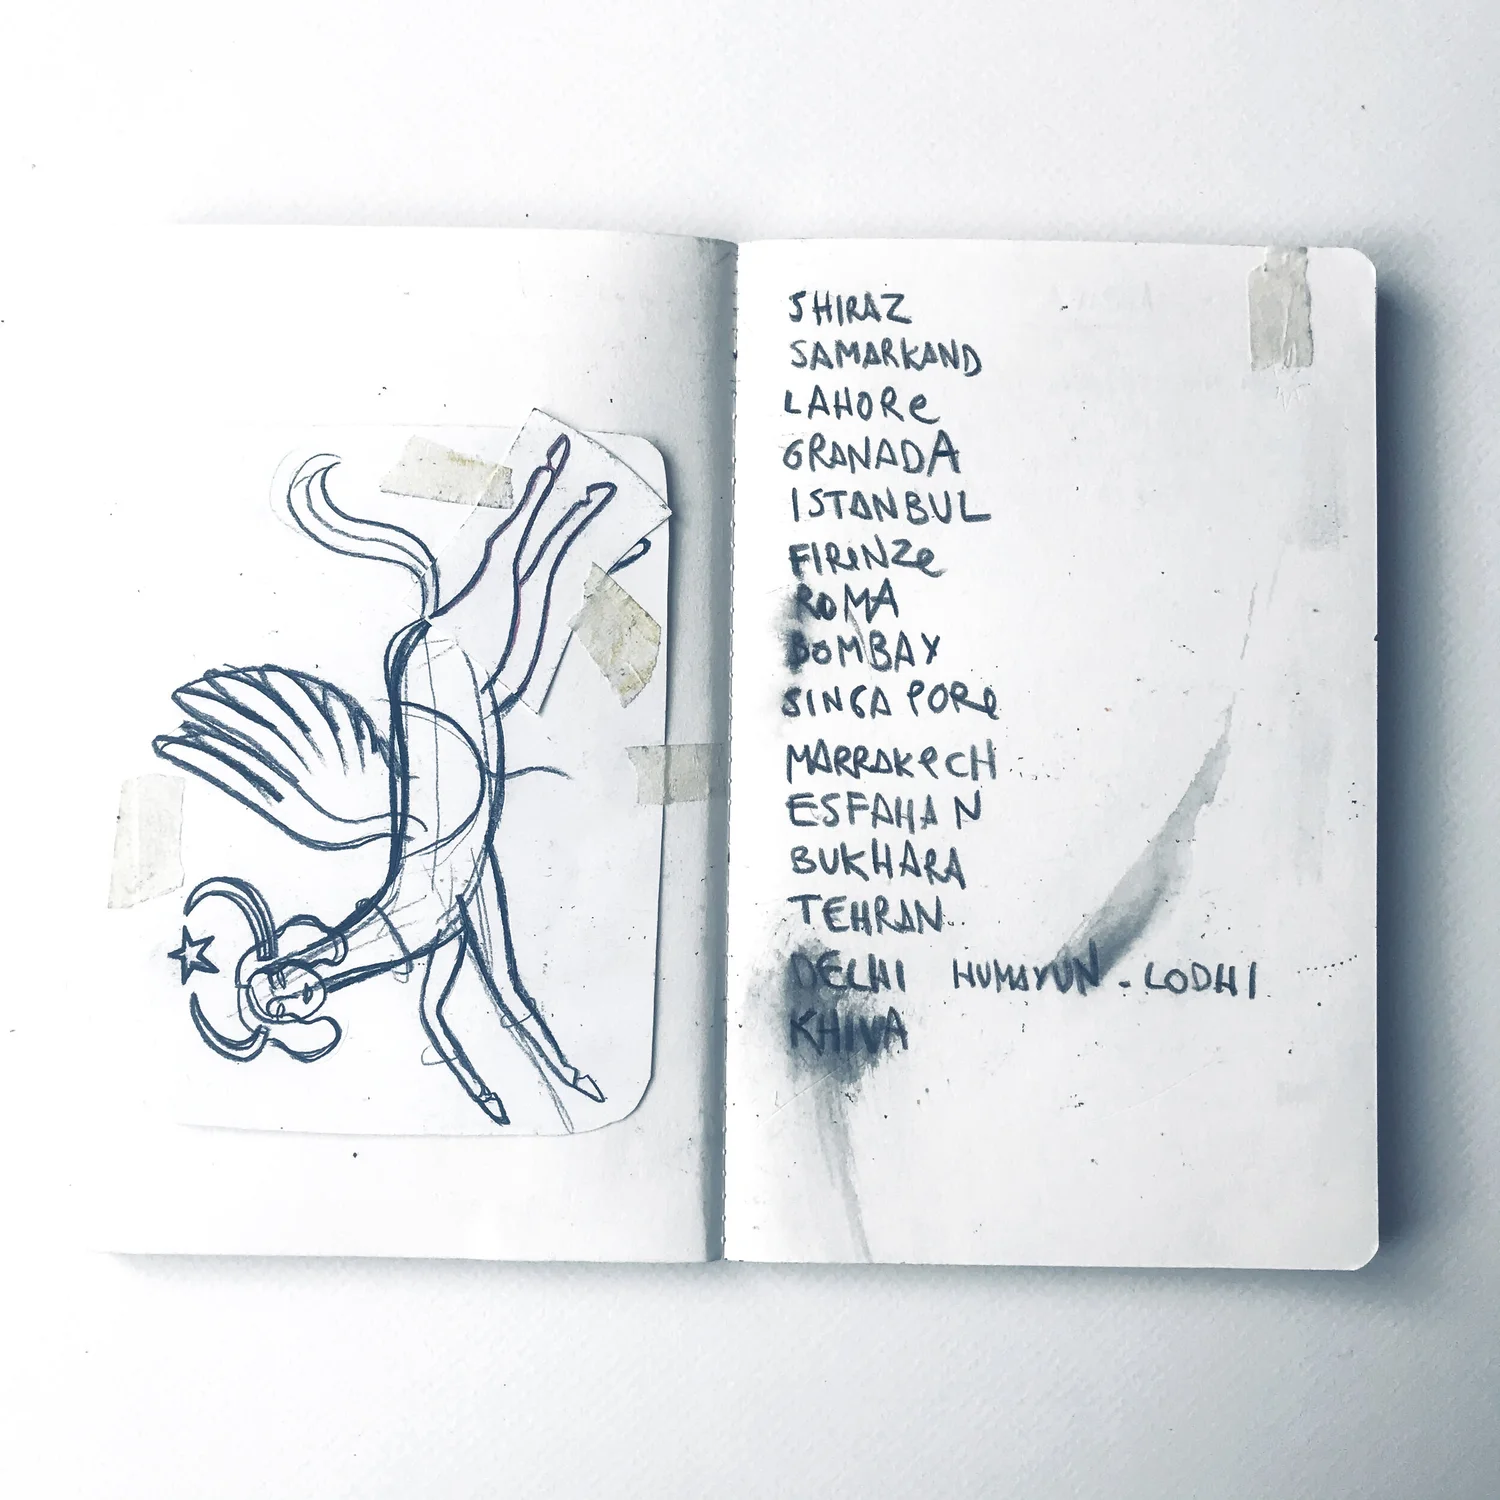 SHIRAZ
SAMARKAND
LAHORe
GRANADA
ISTANBUL
FIReNZe
ROMA
BOMBAY
SINGAPORe
MARRAKeCH
ESFAHAN
BUKHARA
TEHRAN
DELHI HUMAYUN - LODHI
KHIVA